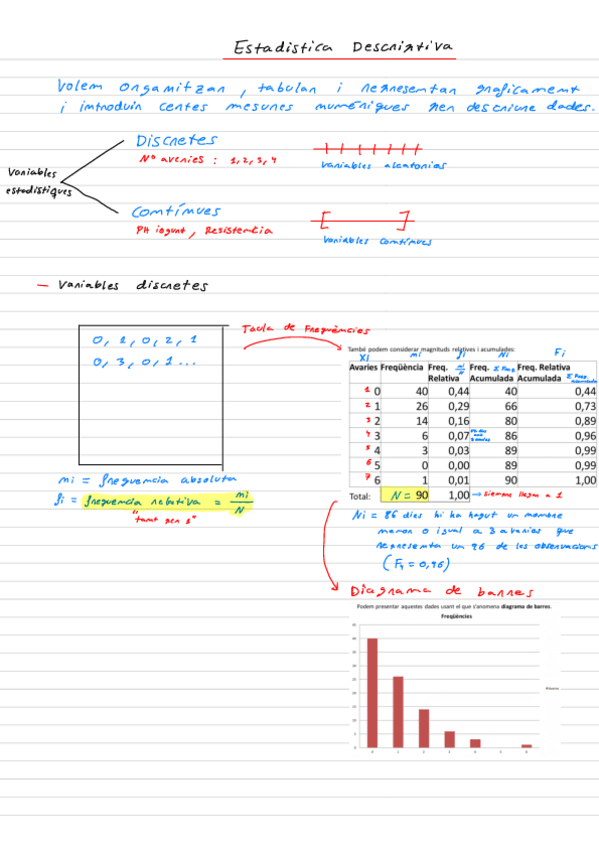 Estadística Descriptiva
Volem organitzar, tabular i representar graficament
i introduir certes mesures numériques per descriure dades.
Discretes
Nº averies : 1, 2, 3, 4
variables aleatories
Variables
estadístiques
Contínues
PH iogurt, Resistencia
variables contínues
- Variables discretes
Taula de Freqüències
0, 1, 0, 2, 1
0, 3, 0, 1 ...
També podem considerar magnituds relatives i acumulades:
Xi ni fi Ni Fi
Avaries Freqüència Freq. Relativa ni/N Freq. Acumulada Σ Freq. Freq. Relativa Acumulada Σ Freq. acumulada
1 0 40 0,44 40 0,44
2 1 26 0,29 66 0,73
3 2 14 0,16 80 0,89
4 3 6 0,07 86 0,96
5 4 3 0,03 89 0,99
6 5 0 0,00 89 0,99
7 6 1 0,01 90 1,00
Total: N = 90 1,00 → siempre llega a 1
ni = frequencia absoluta
fi = frequencia relativa = ni/N
"tant per 1"
Ni = 86 dies hi ha hagut un nombre
menor o igual a 3 avaries que
representa un 96 de les observacions
(F4 = 0,96)
Diagrama de barres
Podem presentar aquestes dades usant el que s'anomena diagrama de barres.
Freqüències
45
40
35
30
25
20
15
10
5
0
0 1 2 3 4 5 6